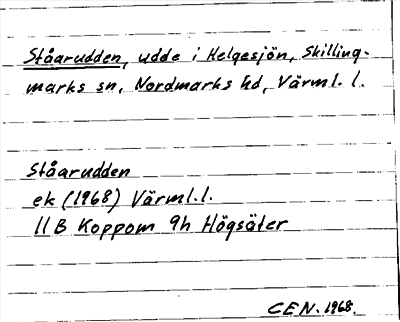 Ståarudden, udde i Helgesjön, Skilling-
marks sn, Nordmarks hd, Värml. l.
Ståarudden
ek (1968) Värml. l.
11 B Koppom 9h Högsäter
CEN. 1968.